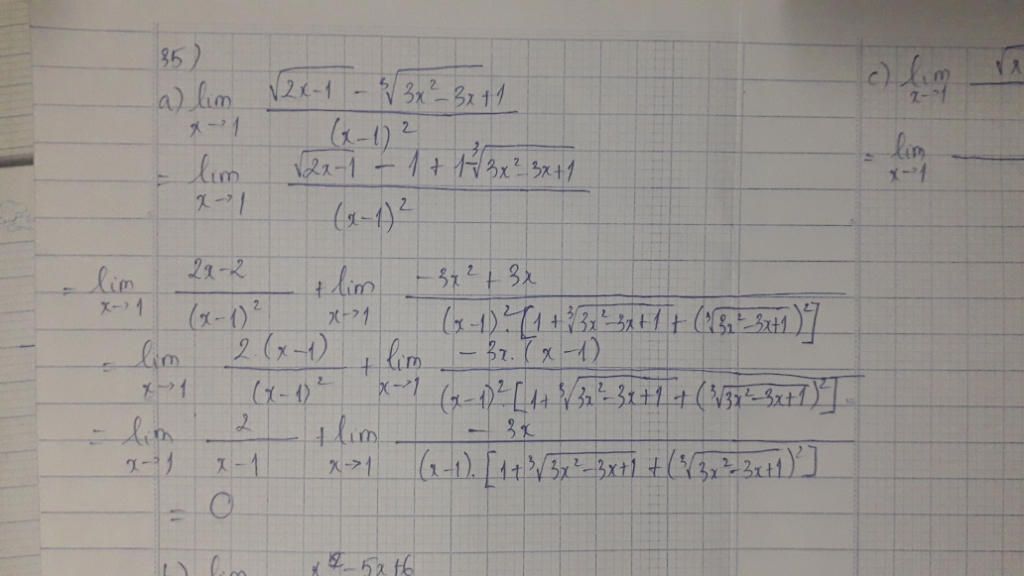 35)
a) lim x→1 (√(2x-1) - ∛(3x²-3x+1)) / (x-1)²
= lim x→1 (√(2x-1) - 1 + 1 - ∛(3x²-3x+1)) / (x-1)²
= lim x→1 (2x-2) / (x-1)² + lim x→1 (-3x²+3x) / ((x-1)².[1+∛(3x²-3x+1) + (∛(3x²-3x+1))²])
= lim x→1 2.(x-1) / (x-1)² + lim x→1 -3x.(x-1) / ((x-1)².[1+∛(3x²-3x+1) + (∛(3x²-3x+1))²])
= lim x→1 2 / (x-1) + lim x→1 -3x / ((x-1).[1+∛(3x²-3x+1) + (∛(3x²-3x+1))²])
= 0
b) lim x²-5x+6
c) lim x→1
= lim x→1